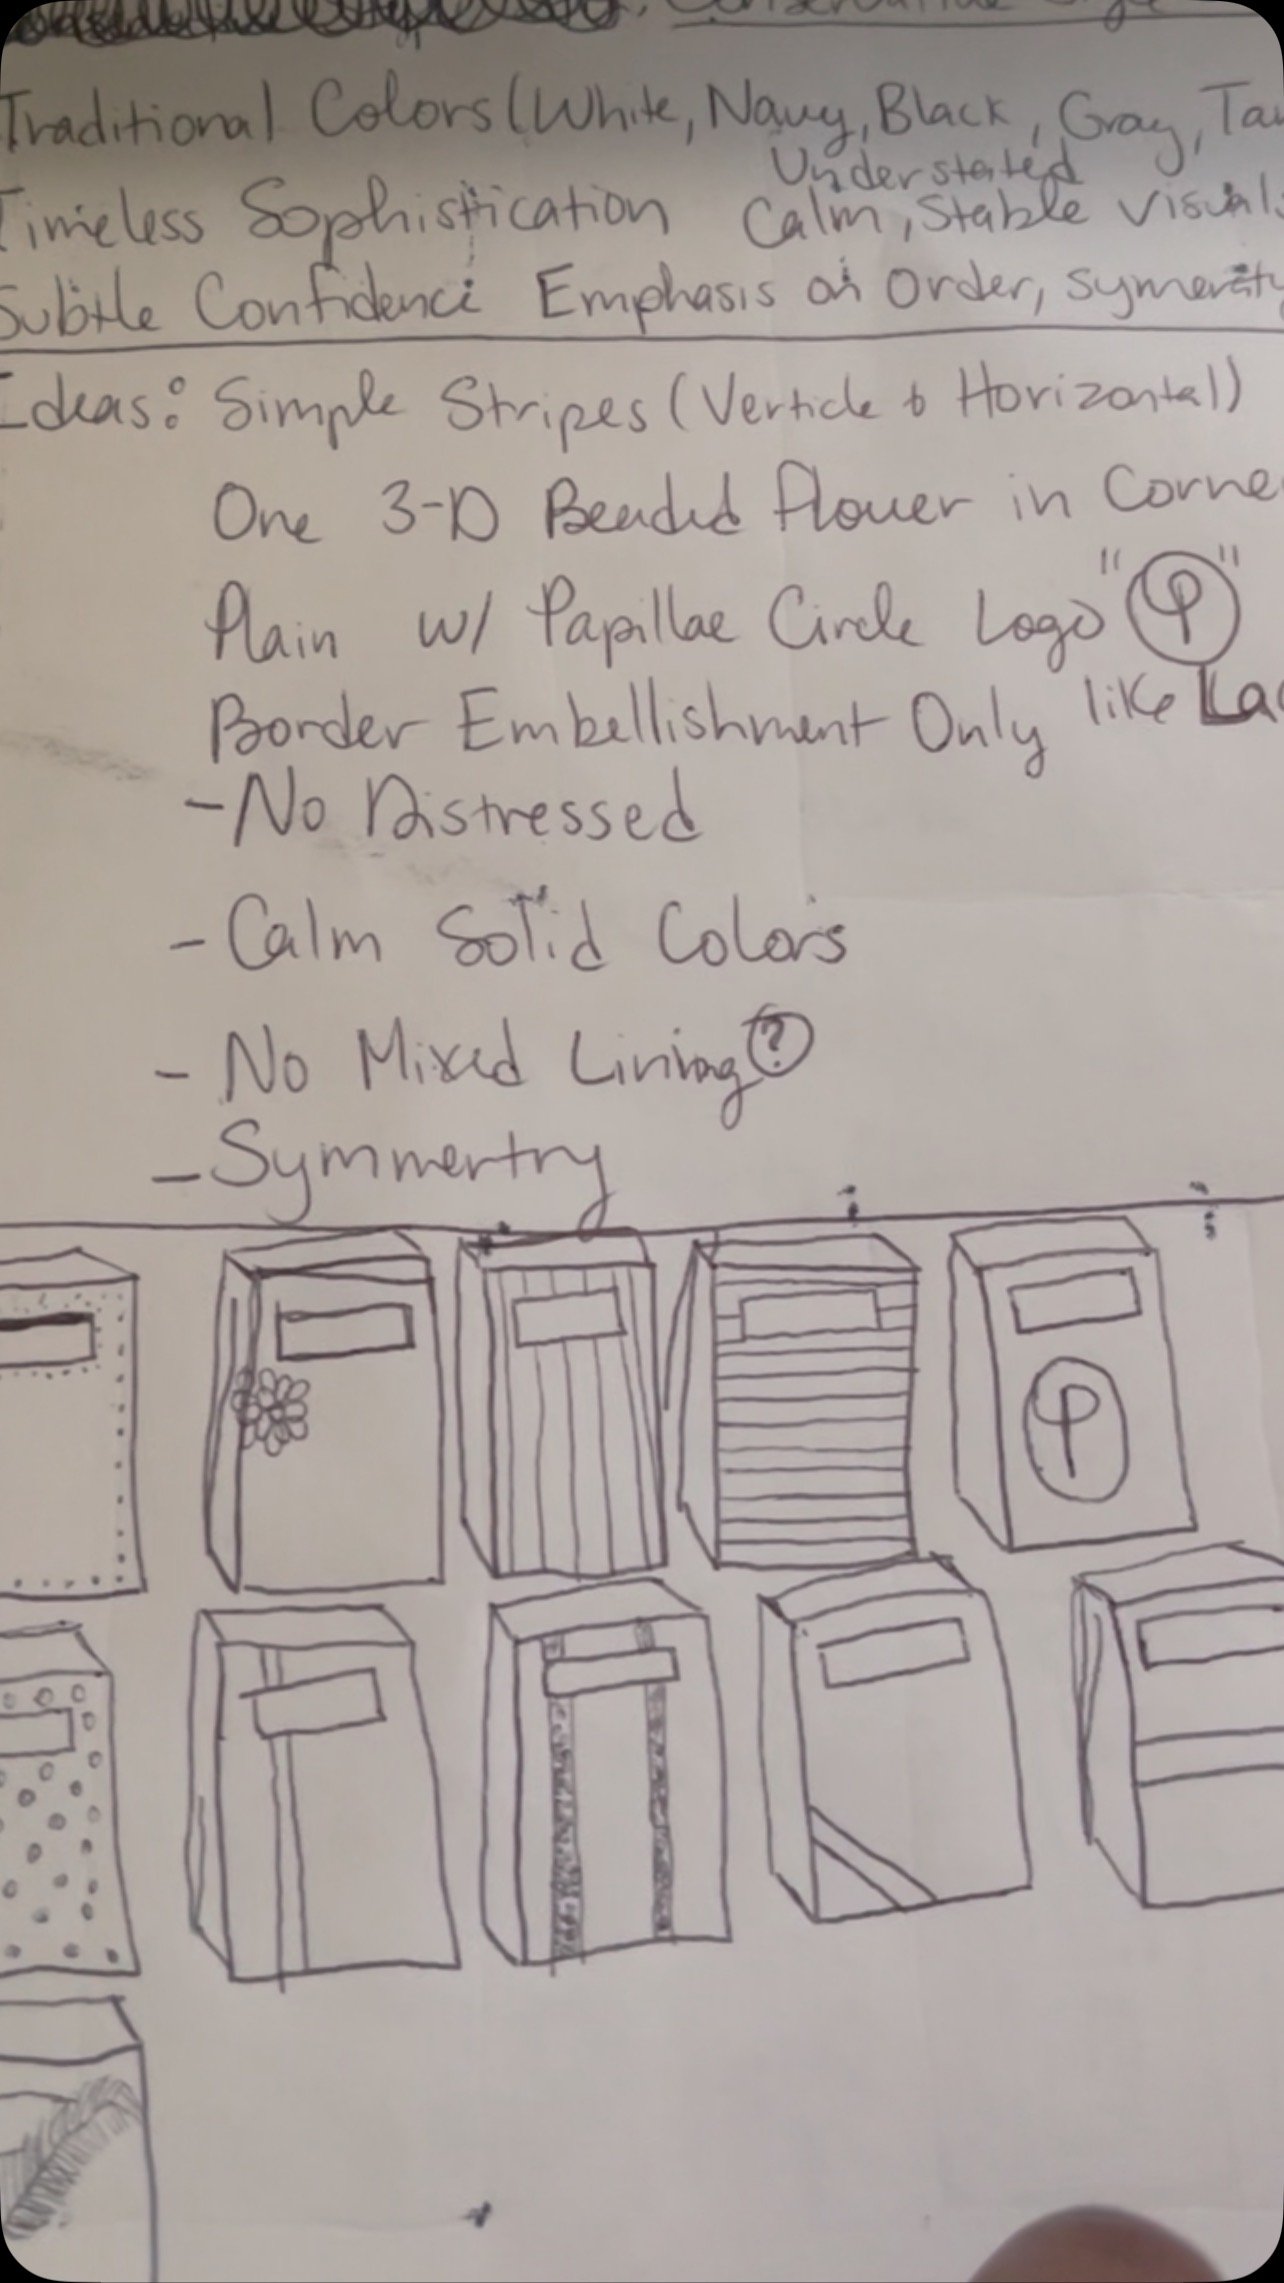 Conservative Style
Traditional Colors (White, Navy, Black, Gray, Ta
Understated
Timeless Sophistication Calm, Stable Visuals
Subtle Confidence Emphasis on Order, Symerety
Ideas: Simple Stripes (Verticle & Horizontal)
One 3-D Beaded Flower in Corner
Plain w/ Papillae Circle Logo "P"
Border Embellishment Only like Lac
- No Distressed
- Calm Solid Colors
- No Mixed Lining ?
- Symmertry
P